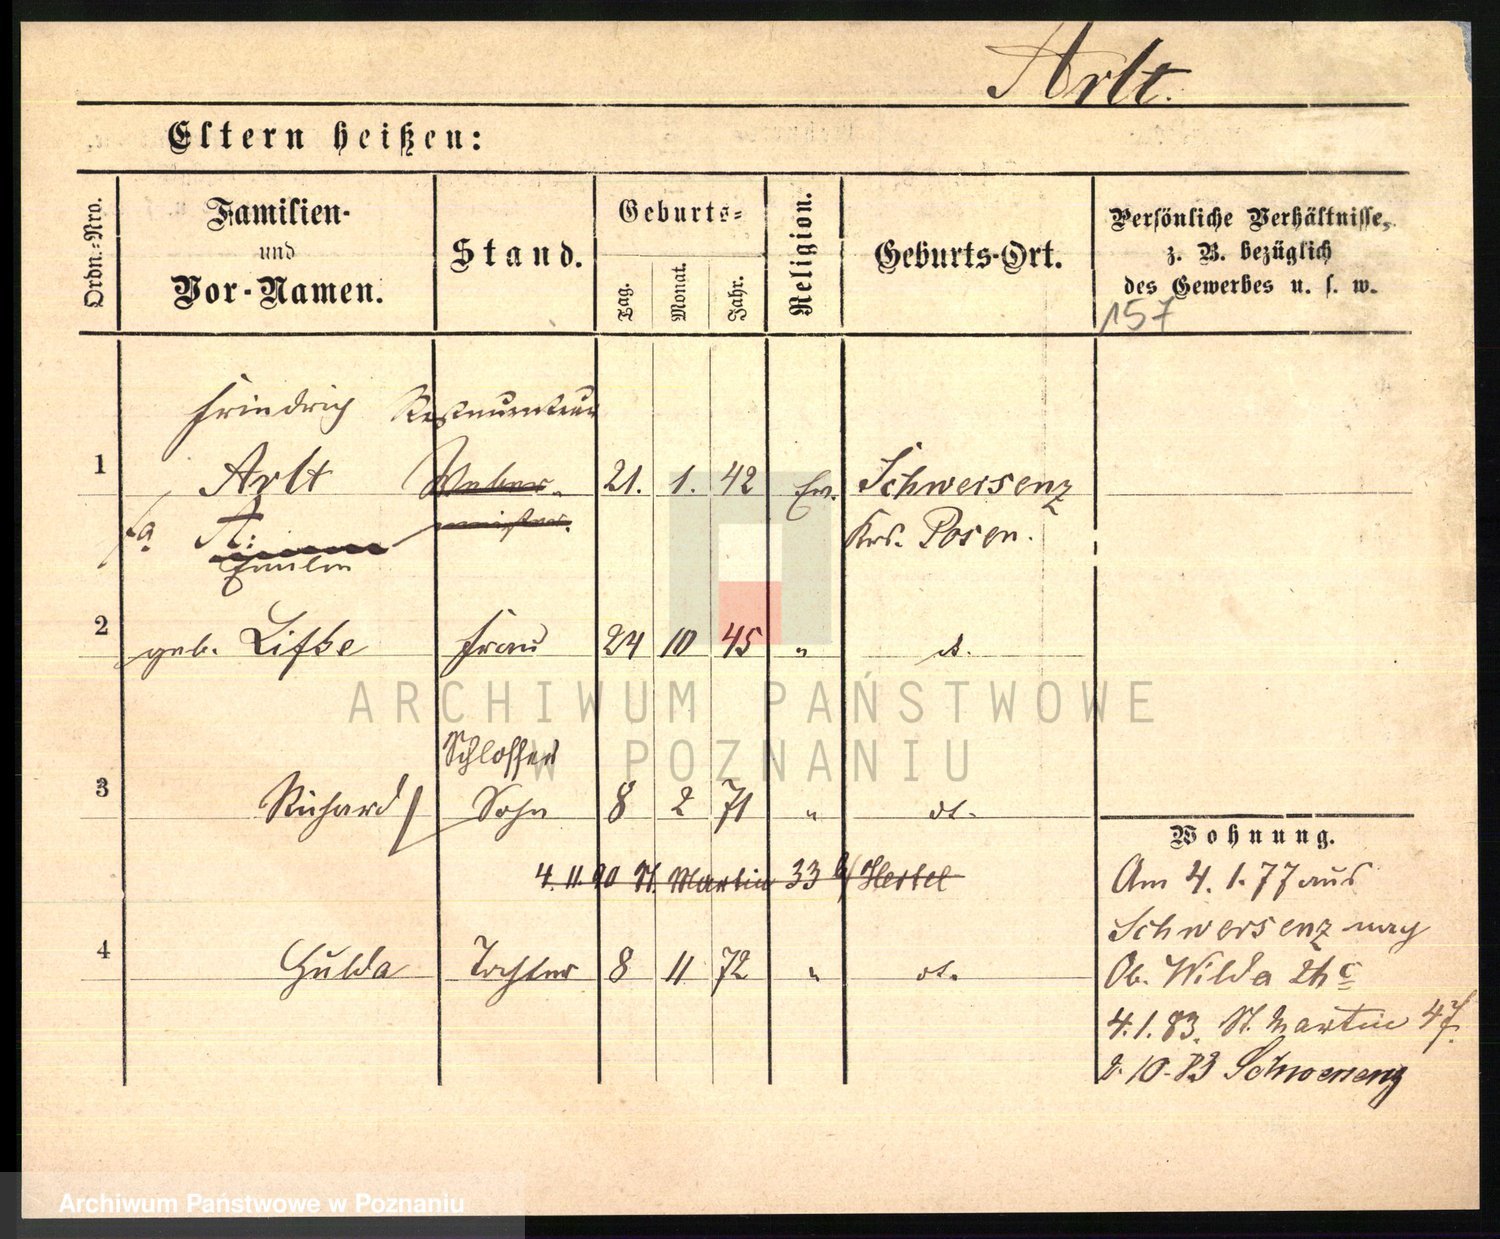 Arlt.
Eltern heißen:
Ordn.-Nro.
Familien-
und
Vor-Namen.
Stand.
Geburts-
Tag.
Monat.
Jahr.
Religion.
Geburts-Ort.
Persönliche Verhältnisse,
z. B. bezüglich
des Gewerbes u. s. w.
157
Friedrich Restaurateur
1 Arlt Weber- 21. 1. 42 Ev. Schwersenz
A: meister. Krs. Posen.
2 geb. Liske Frau 24 10 45 " dt.
Schlosser
3 Richard Sohn 8 2 71 " dt.
4.11.90 St. Martin 33 b/ Hertel
4 Hulda Tochter 8 11 72 " dt.
Wohnung.
Am 4.1.77 aus
Schwersenz nach
Ob. Wilda 2h c
4.1.83. St. Martin 47.
2.10.83 Schwersenz
ARCHIWUM PAŃSTWOWE
W POZNANIU
Archiwum Państwowe w Poznaniu